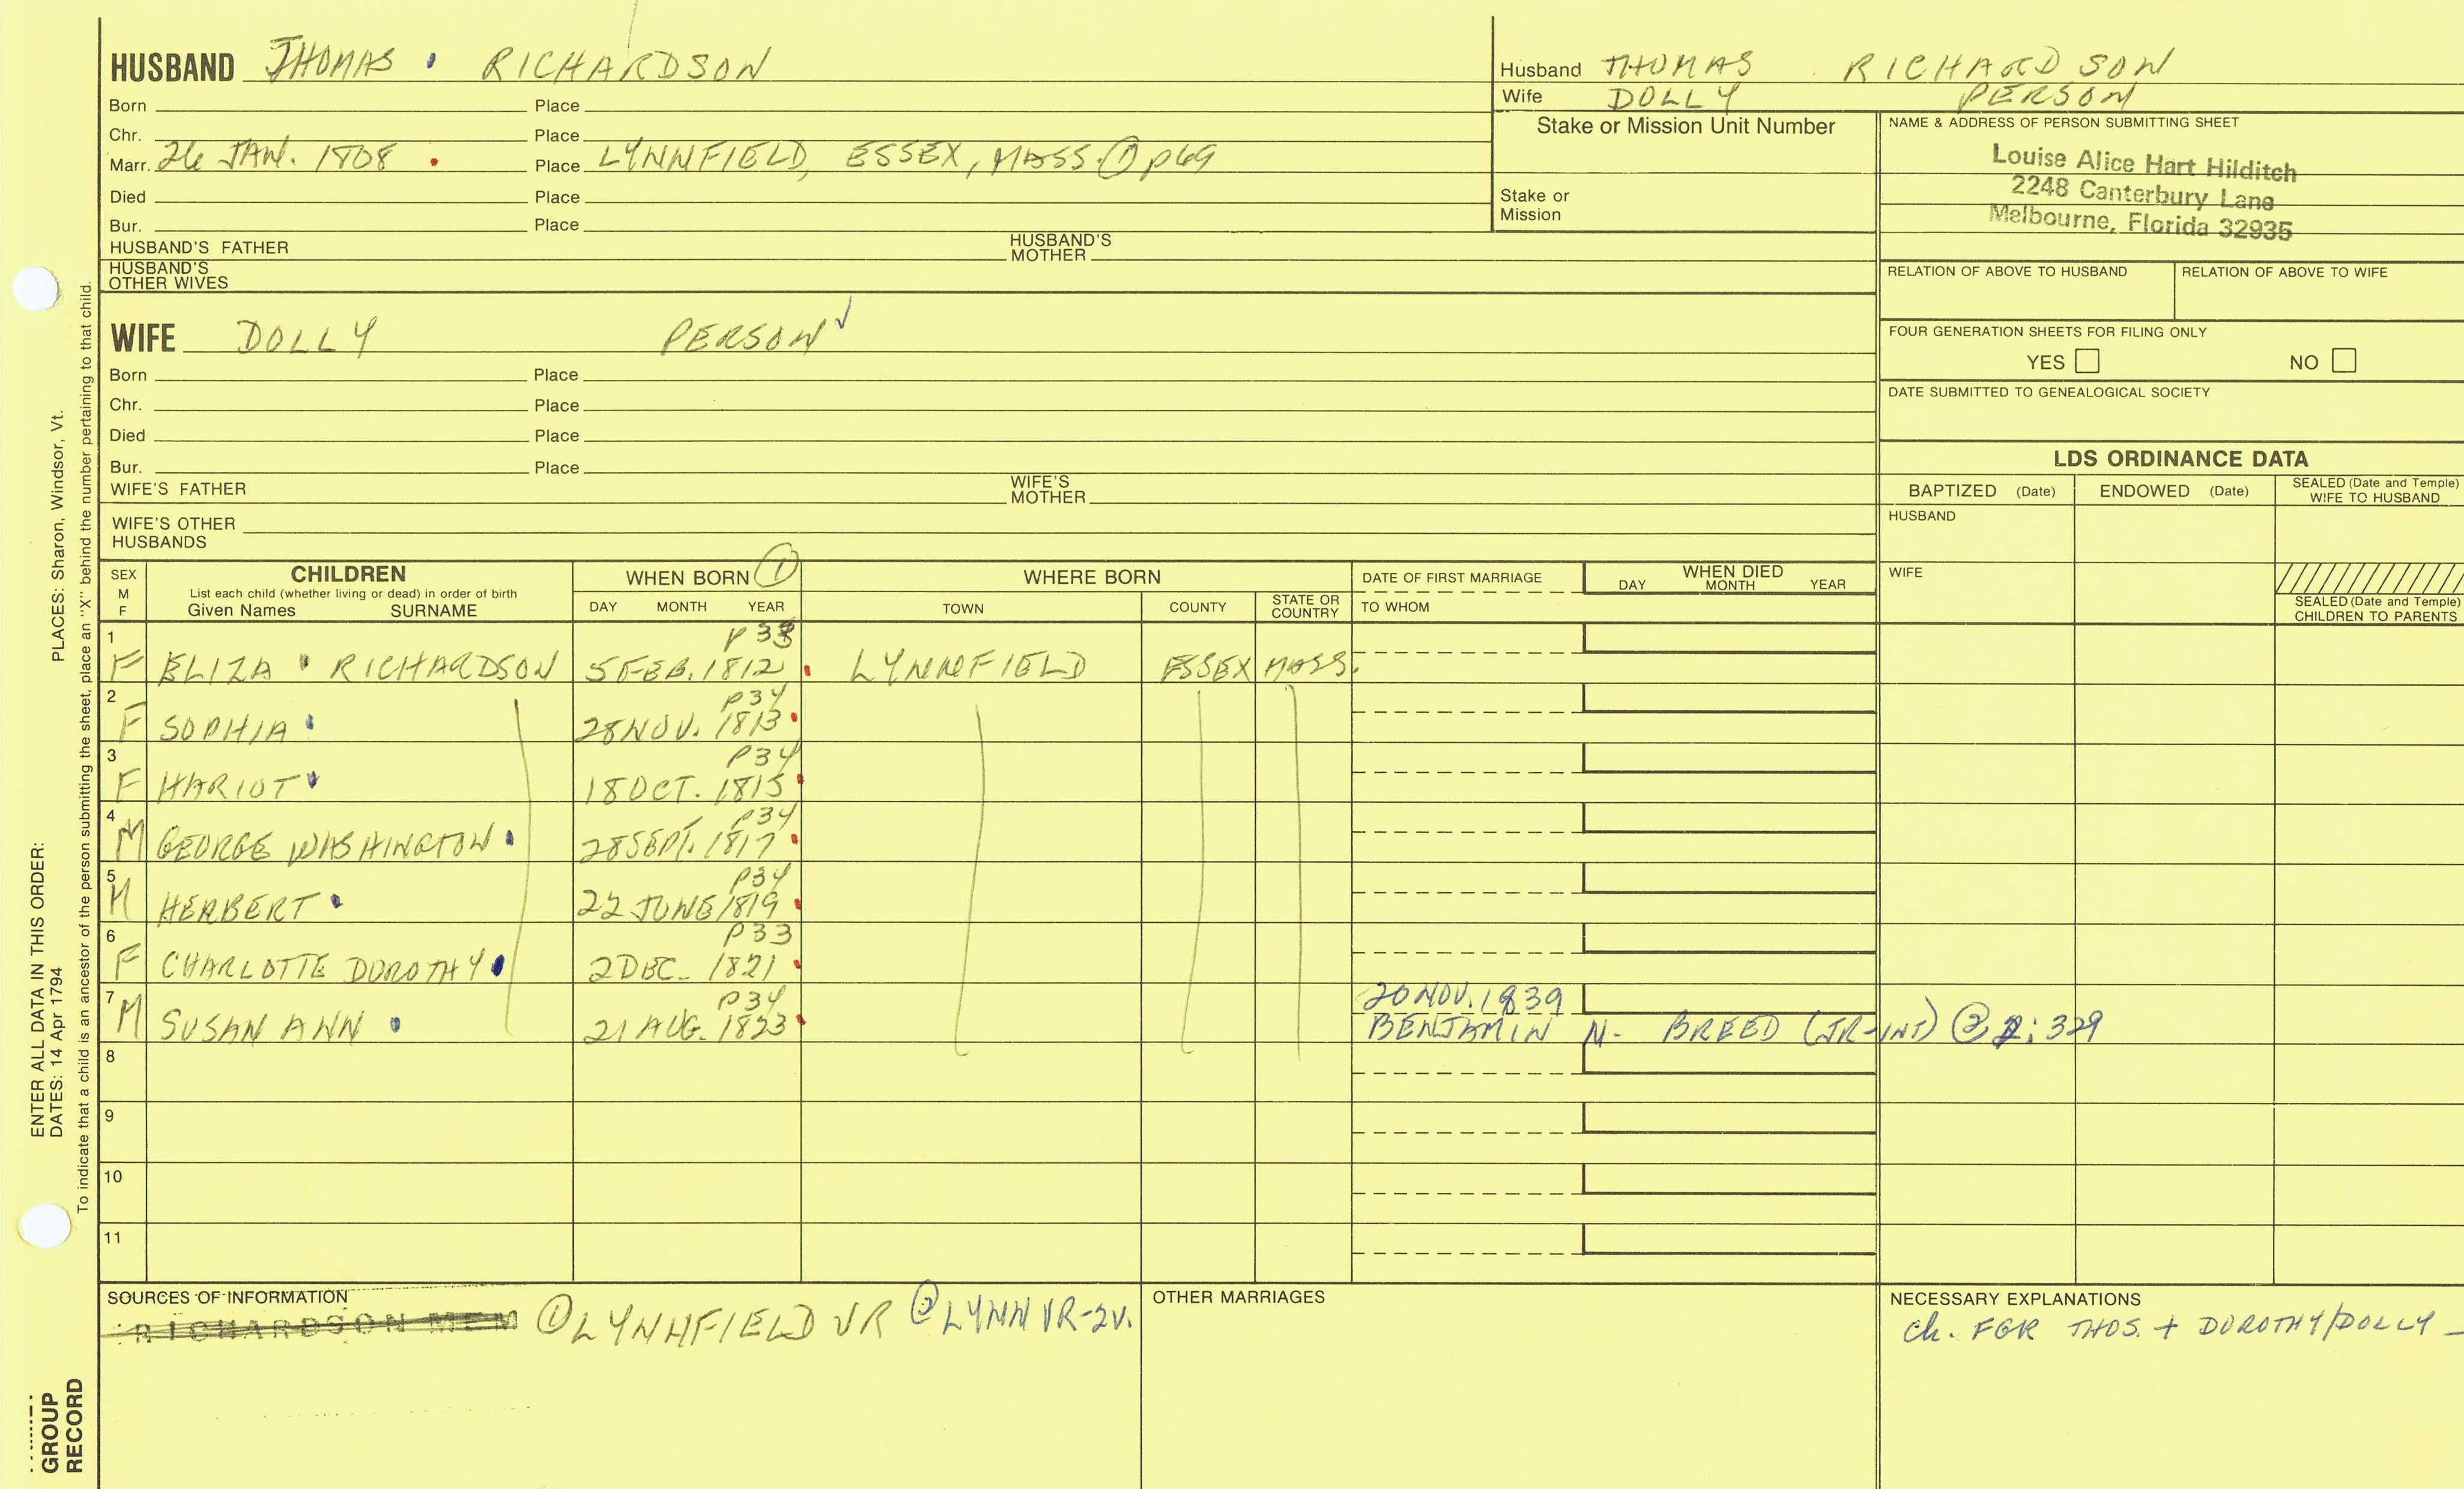 HUSBAND THOMAS RICHARDSON
Born Place
Chr. Place
Marr. 26 JAN. 1808 Place LYNNFIELD, ESSEX, MASS. ① p69
Died Place
Bur. Place
HUSBAND'S FATHER HUSBAND'S MOTHER
HUSBAND'S OTHER WIVES
Husband THOMAS RICHARDSON
Wife DOLLY PERSON
Stake or Mission Unit Number
Stake or Mission
NAME & ADDRESS OF PERSON SUBMITTING SHEET
Louise Alice Hart Hilditch
2248 Canterbury Lane
Melbourne, Florida 32935
RELATION OF ABOVE TO HUSBAND RELATION OF ABOVE TO WIFE
FOUR GENERATION SHEETS FOR FILING ONLY
YES NO
DATE SUBMITTED TO GENEALOGICAL SOCIETY
WIFE DOLLY PERSON ✓
Born Place
Chr. Place
Died Place
Bur. Place
WIFE'S FATHER WIFE'S MOTHER
WIFE'S OTHER HUSBANDS
LDS ORDINANCE DATA
BAPTIZED (Date) ENDOWED (Date) SEALED (Date and Temple) WIFE TO HUSBAND
HUSBAND
WIFE
SEALED (Date and Temple) CHILDREN TO PARENTS
SEX M F
CHILDREN
List each child (whether living or dead) in order of birth
Given Names SURNAME
WHEN BORN ①
DAY MONTH YEAR
WHERE BORN
TOWN COUNTY STATE OR COUNTRY
DATE OF FIRST MARRIAGE
TO WHOM
WHEN DIED
DAY MONTH YEAR
1 P33
F ELIZA RICHARDSON 5 FEB. 1812 LYNNFIELD ESSEX MASS.
2 P34
F SOPHIA 28 NOV. 1813
3 P34
F HARIOT 18 OCT. 1815
4 P34
M GEORGE WASHINGTON 28 SEPT. 1817
5 P34
M HERBERT 22 JUNE 1819
6 P33
F CHARLOTTE DOROTHY 2 DEC. 1821
7 P34 20 NOV. 1839
M SUSAN ANN 21 AUG. 1823 BENJAMIN N. BREED (JR-INT) ② 2:329
8
9
10
11
SOURCES OF INFORMATION
RICHARDSON MEM ① LYNNFIELD VR ② LYNN VR-2V.
OTHER MARRIAGES
NECESSARY EXPLANATIONS
Ch. FGR THOS. + DOROTHY/DOLLY —
ENTER ALL DATA IN THIS ORDER:
DATES: 14 Apr 1794 PLACES: Sharon, Windsor, Vt.
To indicate that a child is an ancestor of the person submitting the sheet, place an "X" behind the number pertaining to that child.
GROUP
RECORD